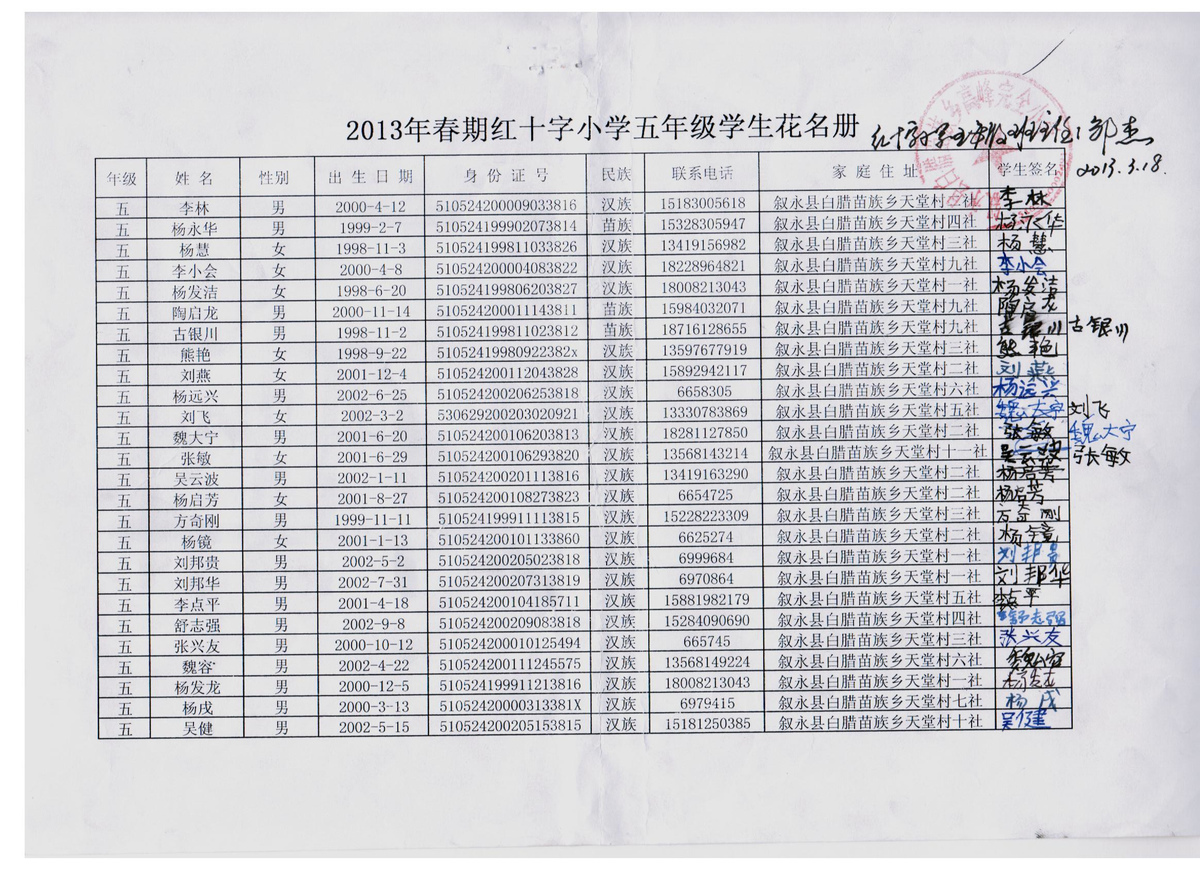 2013年春期红十字小学五年级学生花名册
邹杰
2013.3.18.
年级 姓名 性别 出生日期 身份证号 民族 联系电话 家庭住址 学生签名
五 李林 男 2000-4-12 510524200009033816 汉族 15183005618 叙永县白腊苗族乡天堂村一社 李林
五 杨永华 男 1999-2-7 510524199902073814 苗族 15328305947 叙永县白腊苗族乡天堂村四社 杨永华
五 杨慧 女 1998-11-3 510524199811033826 汉族 13419156982 叙永县白腊苗族乡天堂村三社 杨慧
五 李小会 女 2000-4-8 510524200004083822 汉族 18228964821 叙永县白腊苗族乡天堂村九社 李小会
五 杨发洁 女 1998-6-20 510524199806203827 汉族 18008213043 叙永县白腊苗族乡天堂村一社 杨发洁
五 陶启龙 男 2000-11-14 510524200011143811 苗族 15984032071 叙永县白腊苗族乡天堂村九社 陶启龙
五 古银川 男 1998-11-2 510524199811023812 苗族 18716128655 叙永县白腊苗族乡天堂村九社 古银川 古银川
五 熊艳 女 1998-9-22 51052419980922382x 汉族 13597677919 叙永县白腊苗族乡天堂村三社 熊艳
五 刘燕 女 2001-12-4 510524200112043828 汉族 15892942117 叙永县白腊苗族乡天堂村二社 刘燕
五 杨远兴 男 2002-6-25 510524200206253818 汉族 6658305 叙永县白腊苗族乡天堂村六社 杨远兴
五 刘飞 女 2002-3-2 530629200203020921 汉族 13330783869 叙永县白腊苗族乡天堂村五社 魏大宁 刘飞
五 魏大宁 男 2001-6-20 510524200106203813 汉族 18281127850 叙永县白腊苗族乡天堂村二社 张敏 魏大宁
五 张敏 女 2001-6-29 510524200106293820 汉族 13568143214 叙永县白腊苗族乡天堂村十一社 吴云波 张敏
五 吴云波 男 2002-1-11 510524200201113816 汉族 13419163290 叙永县白腊苗族乡天堂村二社
五 杨启芳 女 2001-8-27 510524200108273823 汉族 6654725 叙永县白腊苗族乡天堂村二社 杨启芳
五 方奇刚 男 1999-11-11 510524199911113815 汉族 15228223309 叙永县白腊苗族乡天堂村三社 方奇刚
五 杨镜 女 2001-1-13 510524200101133860 汉族 6625274 叙永县白腊苗族乡天堂村二社 杨镜
五 刘邦贵 男 2002-5-2 510524200205023818 汉族 6999684 叙永县白腊苗族乡天堂村一社 刘邦贵
五 刘邦华 男 2002-7-31 510524200207313819 汉族 6970864 叙永县白腊苗族乡天堂村一社 刘邦华
五 李点平 男 2001-4-18 510524200104185711 汉族 15881982179 叙永县白腊苗族乡天堂村五社 李点平
五 舒志强 男 2002-9-8 510524200209083818 汉族 15284090690 叙永县白腊苗族乡天堂村四社 舒志强
五 张兴友 男 2000-10-12 510524200010125494 汉族 665745 叙永县白腊苗族乡天堂村三社 张兴友
五 魏容 男 2002-4-22 510524200111245575 汉族 13568149224 叙永县白腊苗族乡天堂村六社 魏容
五 杨发龙 男 2000-12-5 510524199911213816 汉族 18008213043 叙永县白腊苗族乡天堂村一社 杨发龙
五 杨戌 男 2000-3-13 51052420000313381X 汉族 6979415 叙永县白腊苗族乡天堂村七社 杨戌
五 吴健 男 2002-5-15 510524200205153815 汉族 15181250385 叙永县白腊苗族乡天堂村十社 吴健